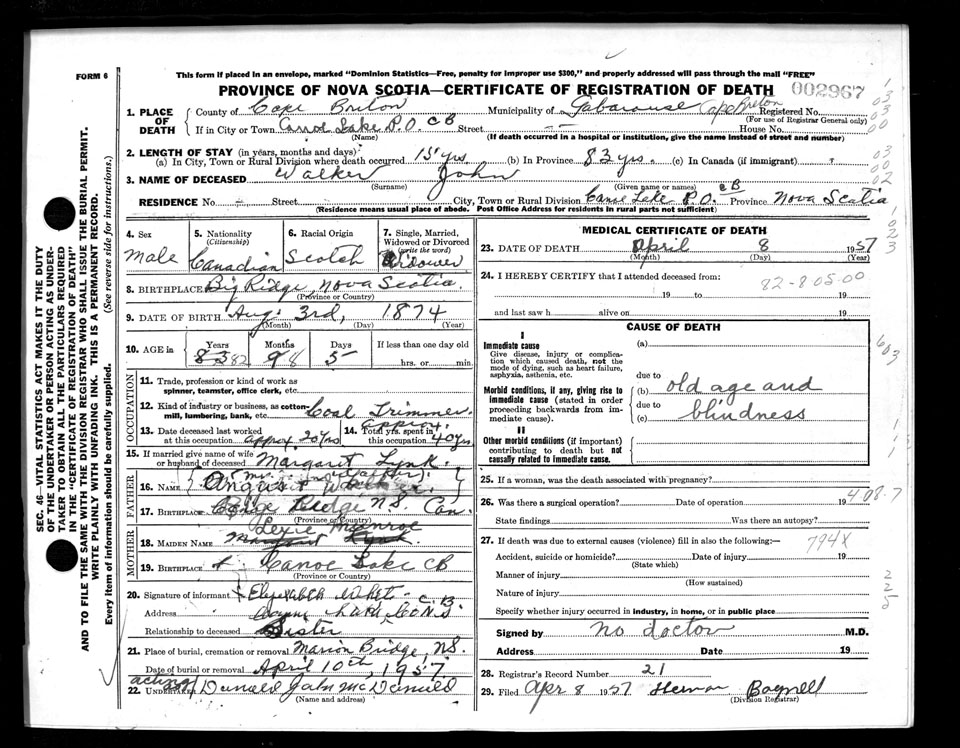 FORM 6
This form if placed in an envelope, marked "Dominion Statistics—Free, penalty for improper use $300," and properly addressed will pass through the mail "FREE"
PROVINCE OF NOVA SCOTIA—CERTIFICATE OF REGISTRATION OF DEATH 002967
1. PLACE OF DEATH
County of Cape Breton Municipality of Gabarouse Cape Breton Registered No.
(For use of Registrar General only)
If in City or Town Canoe Lake P.O. CB Street -- House No.
(If death occurred in a hospital or institution, give the name instead of street and number)
2. LENGTH OF STAY (in years, months and days)
(a) In City, Town or Rural Division where death occurred 15 yrs (b) In Province 83 yrs. (c) In Canada (if immigrant)
3. NAME OF DECEASED Walker John
(Surname) (Given name or names)
RESIDENCE No. - Street City, Town or Rural Division Canoe Lake P.O. CB Province Nova Scotia
(Residence means usual place of abode. Post Office Address for residents in rural parts not sufficient)
SEC. 46—VITAL STATISTICS ACT MAKES IT THE DUTY
OF THE UNDERTAKER OR PERSON ACTING AS UNDER-
TAKER TO OBTAIN ALL THE PARTICULARS REQUIRED
IN THE "CERTIFICATE OF REGISTRATION OF DEATH"
AND TO FILE THE SAME WITH THE DIVISION REGISTRAR WHO SHALL ISSUE THE BURIAL PERMIT.
WRITE PLAINLY WITH UNFADING INK. THIS IS A PERMANENT RECORD.
Every item of information should be carefully supplied. (See reverse side for instructions.)
4. Sex
Male
5. Nationality
(Citizenship)
Canadian
6. Racial Origin
Scotch
7. Single, Married,
Widowed or Divorced
(write the word)
Widower
8. BIRTHPLACE Big Ridge, Nova Scotia.
(Province or Country)
9. DATE OF BIRTH Aug: 3rd, 1874
(Month) (Day) (Year)
10. AGE in Years Months Days If less than one day old
83 82 9 8 5 hrs. or min.
OCCUPATION
11. Trade, profession or kind of work as
spinner, teamster, office clerk, etc.
12. Kind of industry or business, as cotton-
mill, lumbering, bank, etc. Coal Trimmer.
13. Date deceased last worked
at this occupation approx 20 yrs
14. Total yrs. spent in
this occupation approx. 40 yrs.
15. If married give name of wife
or husband of deceased Margaret Lynk.
FATHER
16. NAME Angus
17. BIRTHPLACE Ridge N.S. Can.
(Province or Country)
MOTHER
18. MAIDEN NAME Lexie Munroe
Margaret Lynk
19. BIRTHPLACE Canoe Lake CB
(Province or Country)
20. Signature of informant Elizabeth
Address Canoe Lake C.B. N.S
Relationship to deceased Sister
21. Place of burial, cremation or removal Marion Bridge, N.S.
Date of burial or removal April 10th, 1957
acting
22. UNDERTAKER Donald John McDonald
(Name and address)
MEDICAL CERTIFICATE OF DEATH
23. DATE OF DEATH April 8 1957
(Month) (Day) (Year)
24. I HEREBY CERTIFY that I attended deceased from:
82-805-00
19 to 19
and last saw h alive on 19
CAUSE OF DEATH
I
Immediate cause
Give disease, injury or complica-
tion which caused death, not the
mode of dying, such as heart failure,
asphyxia, asthenia, etc.
(a)
due to
Morbid conditions, if any, giving rise to
immediate cause (stated in order
proceeding backwards from im-
mediate cause).
(b) old age and
due to
(c) blindness
II
Other morbid conditions (if important)
contributing to death but not
causally related to immediate cause.
25. If a woman, was the death associated with pregnancy?
26. Was there a surgical operation? Date of operation 19
408.7
State findings Was there an autopsy?
27. If death was due to external causes (violence) fill in also the following:—
794X
Accident, suicide or homicide? Date of injury 19
(State which)
Manner of injury
(How sustained)
Nature of injury
Specify whether injury occurred in industry, in home, or in public place
Signed by no doctor M.D.
Address Date 19
28. Registrar's Record Number 21
29. Filed Apr 8 1957 Herman Bagnell
(Division Registrar)